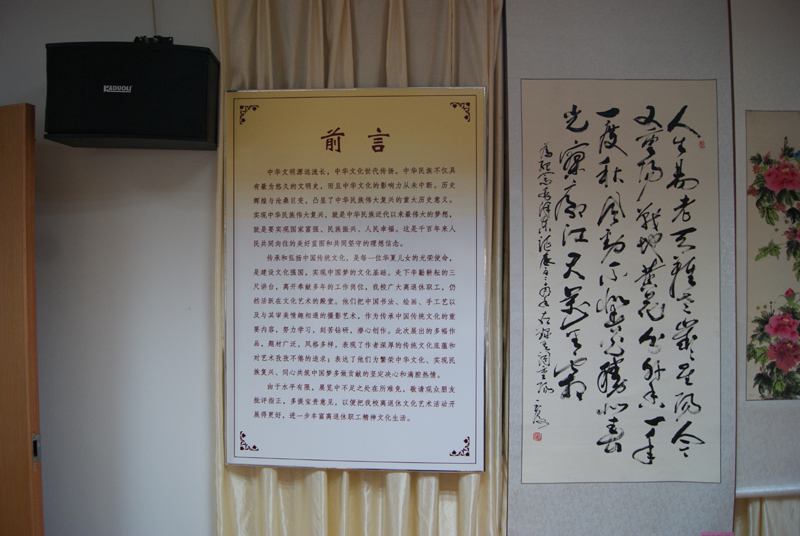 KADUOLI
前言
中华文明源远流长，中华文化世代传扬。中华民族不仅具
有最为悠久的文明史，而且中华文化的影响力从未中断。历史
辉煌与沧桑巨变，凸显了中华民族伟大复兴的重大历史意义。
实现中华民族伟大复兴，就是中华民族近代以来最伟大的梦想，
就是要实现国家富强、民族振兴、人民幸福。这是千百年来人
民共同向往的美好蓝图和共同坚守的理想信念。
传承和弘扬中国传统文化，是每一位华夏儿女的光荣使命，
是建设文化强国，实现中国梦的文化基础。走下辛勤耕耘的三
尺讲台，离开奉献多年的工作岗位，我校广大离退休职工，仍
然活跃在文化艺术的殿堂。他们把中国书法、绘画、手工艺以
及与其审美情趣相通的摄影艺术，作为传承中国传统文化的重
要内容，努力学习，刻苦钻研，潜心创作。此次展出的多幅作
品，题材广泛，风格多样，表现了作者深厚的传统文化底蕴和
对艺术孜孜不倦的追求；表达了他们为繁荣中华文化、实现民
族复兴、同心共筑中国梦多做贡献的坚定决心和满腔热情。
由于水平有限，展览中不足之处在所难免，敬请观众朋友
批评指正，多提宝贵意见，以便把我校离退休文化艺术活动开
展得更好，进一步丰富离退休职工精神文化生活。
人生易老天難老歲歲重陽今
又重陽戰地黃花分外香一年
一度秋風勁不似春光勝似春
光寥廓江天萬里霜